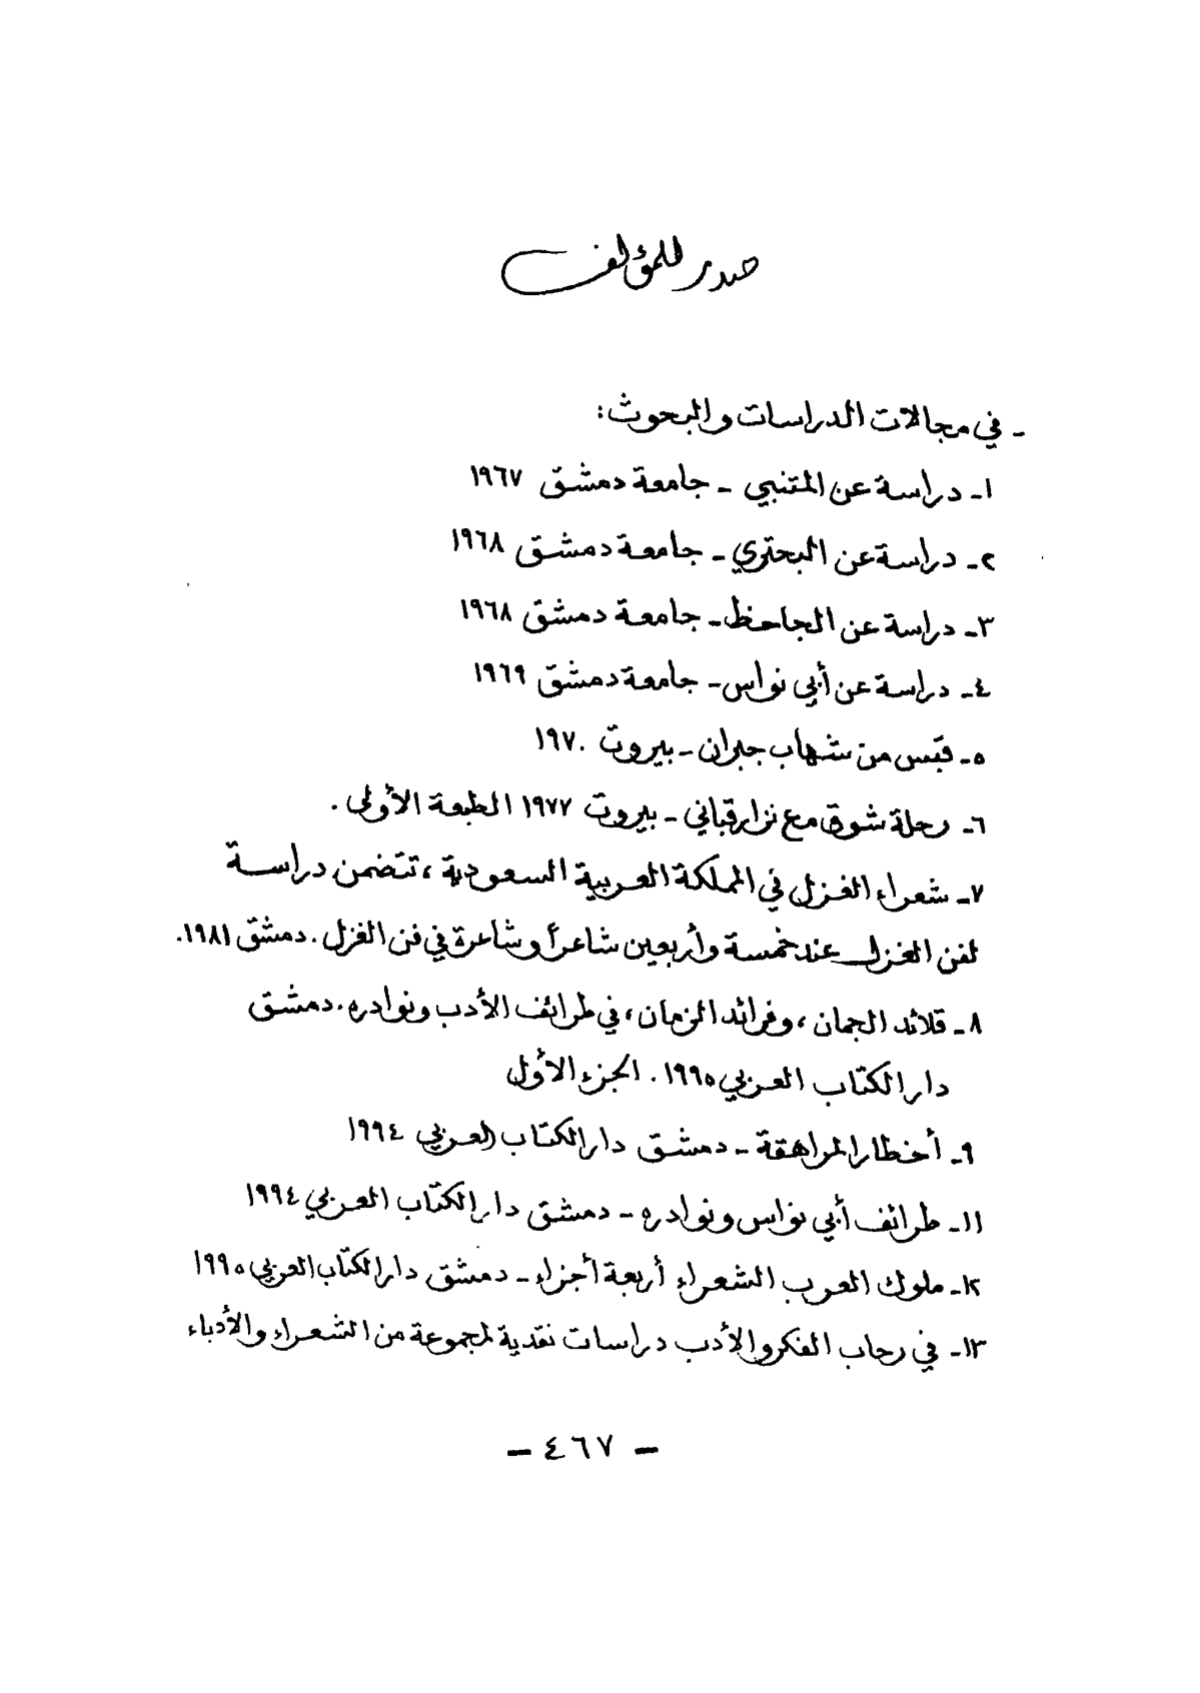 صدر للمؤلف
- في مجالات الدراسات والبحوث:
١- دراسة عن المتنبي - جامعة دمشق ١٩٦٧
٢- دراسة عن البحتري - جامعة دمشق ١٩٦٨
٣- دراسة عن الجاحظ - جامعة دمشق ١٩٦٨
٤- دراسة عن أبي نواس - جامعة دمشق ١٩٦٩
٥- قبس من شهاب جبران - بيروت ١٩٧٠
٦- رحلة شوق مع نزار قباني - بيروت ١٩٧٧ الطبعة الأولى .
٧- شعراء الغزل في المملكة العربية السعودية ، تتضمن دراسة
لفن الغزل عند خمسة وأربعين شاعراً وشاعرة في فن الغزل . دمشق ١٩٨١.
٨- قلائد الجمان ، وفرائد الزمان ، في طرائف الأدب ونوادره . دمشق
دار الكتاب العربي ١٩٩٥ . الجزء الأول
٩- أخطار المراهقة - دمشق دار الكتاب العربي ١٩٩٤
١١- طرائف أبي نواس ونوادره - دمشق دار الكتاب العربي ١٩٩٤
١٢- ملوك العرب الشعراء أربعة أجزاء - دمشق دار الكتاب العربي ١٩٩٥
١٣- في رحاب الفكر والأدب دراسات نقدية لمجموعة من الشعراء والأدباء
- ٤٦٧ -